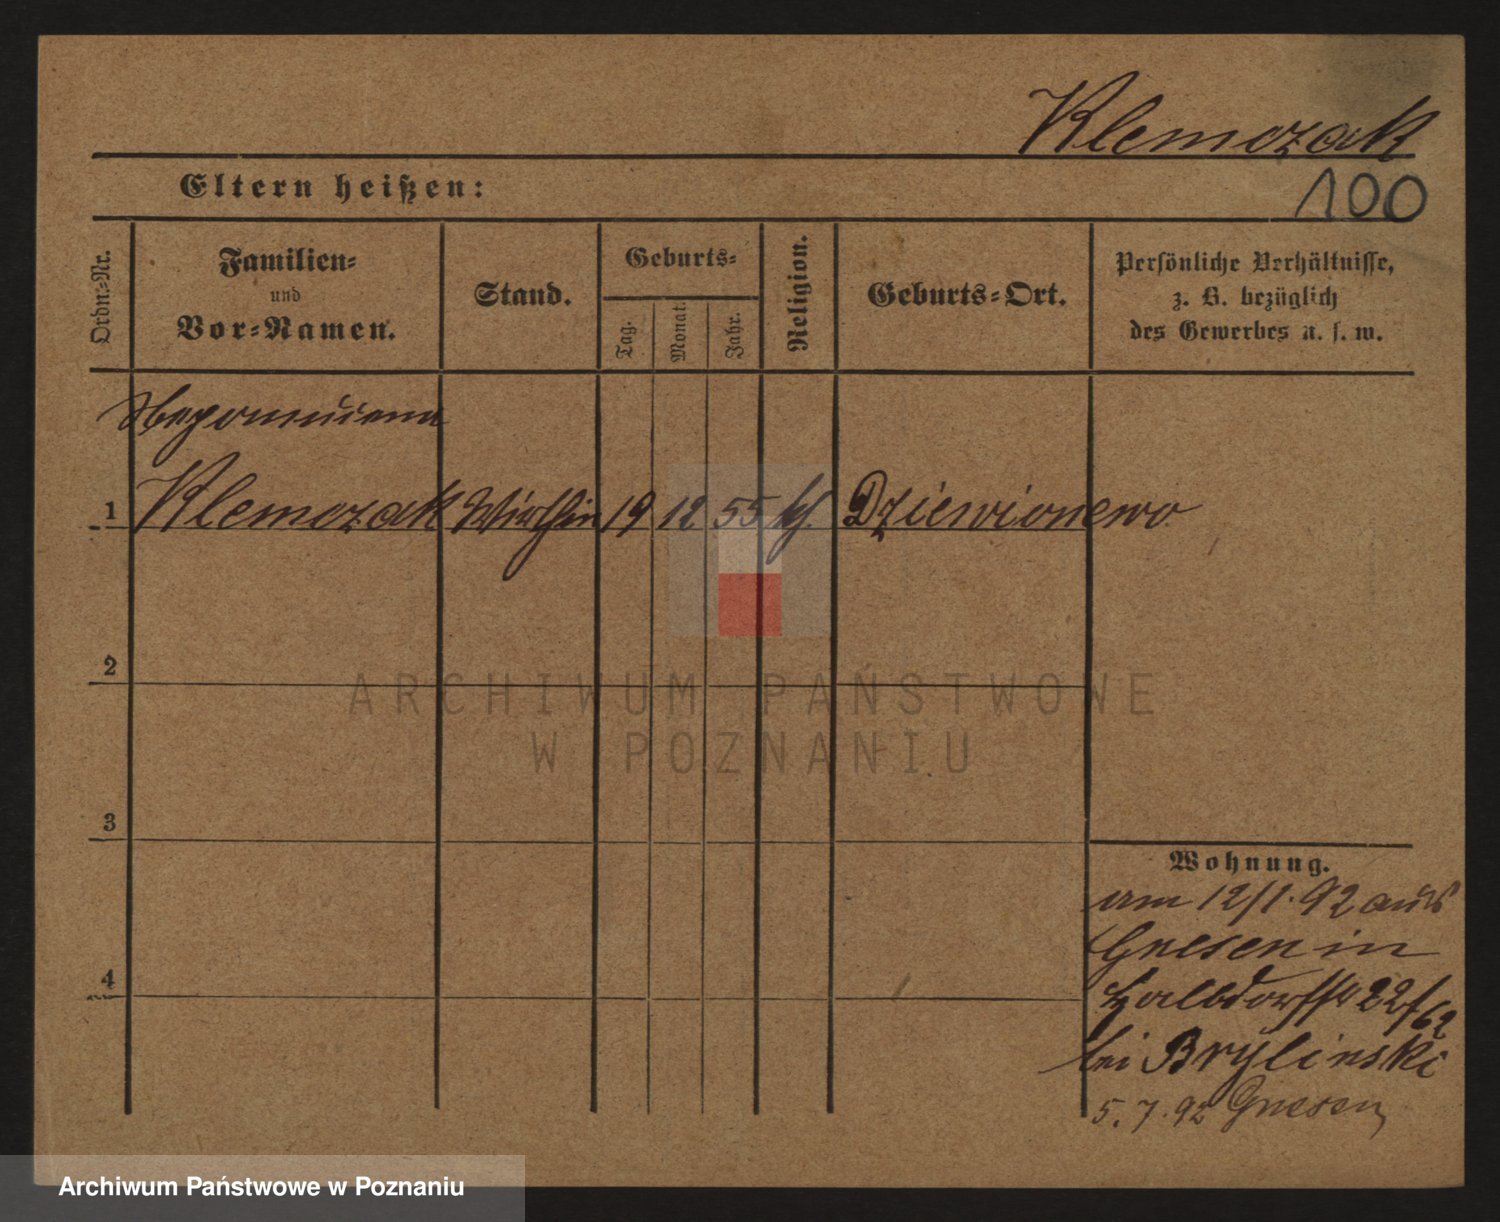 Klemczak
100
Eltern heißen:
Ordn.-Nr.
Familien-
und
Vor-Namen.
Stand.
Geburts-
Tag.
Monat.
Jahr.
Religion.
Geburts-Ort.
Persönliche Verhältnisse,
z. B. bezüglich
des Gewerbes u. s. w.
Nepomucena
1 Klemczak Wirthin 19 12 55 k. Dziewionewo
2
3
4
Wohnung.
am 12/1.92 aus
Gnesen in
Halbdorfstr 22/62
bei Brylinski
5.7.92 Gnesen
ARCHIWUM PAŃSTWOWE
W POZNANIU
Archiwum Państwowe w Poznaniu